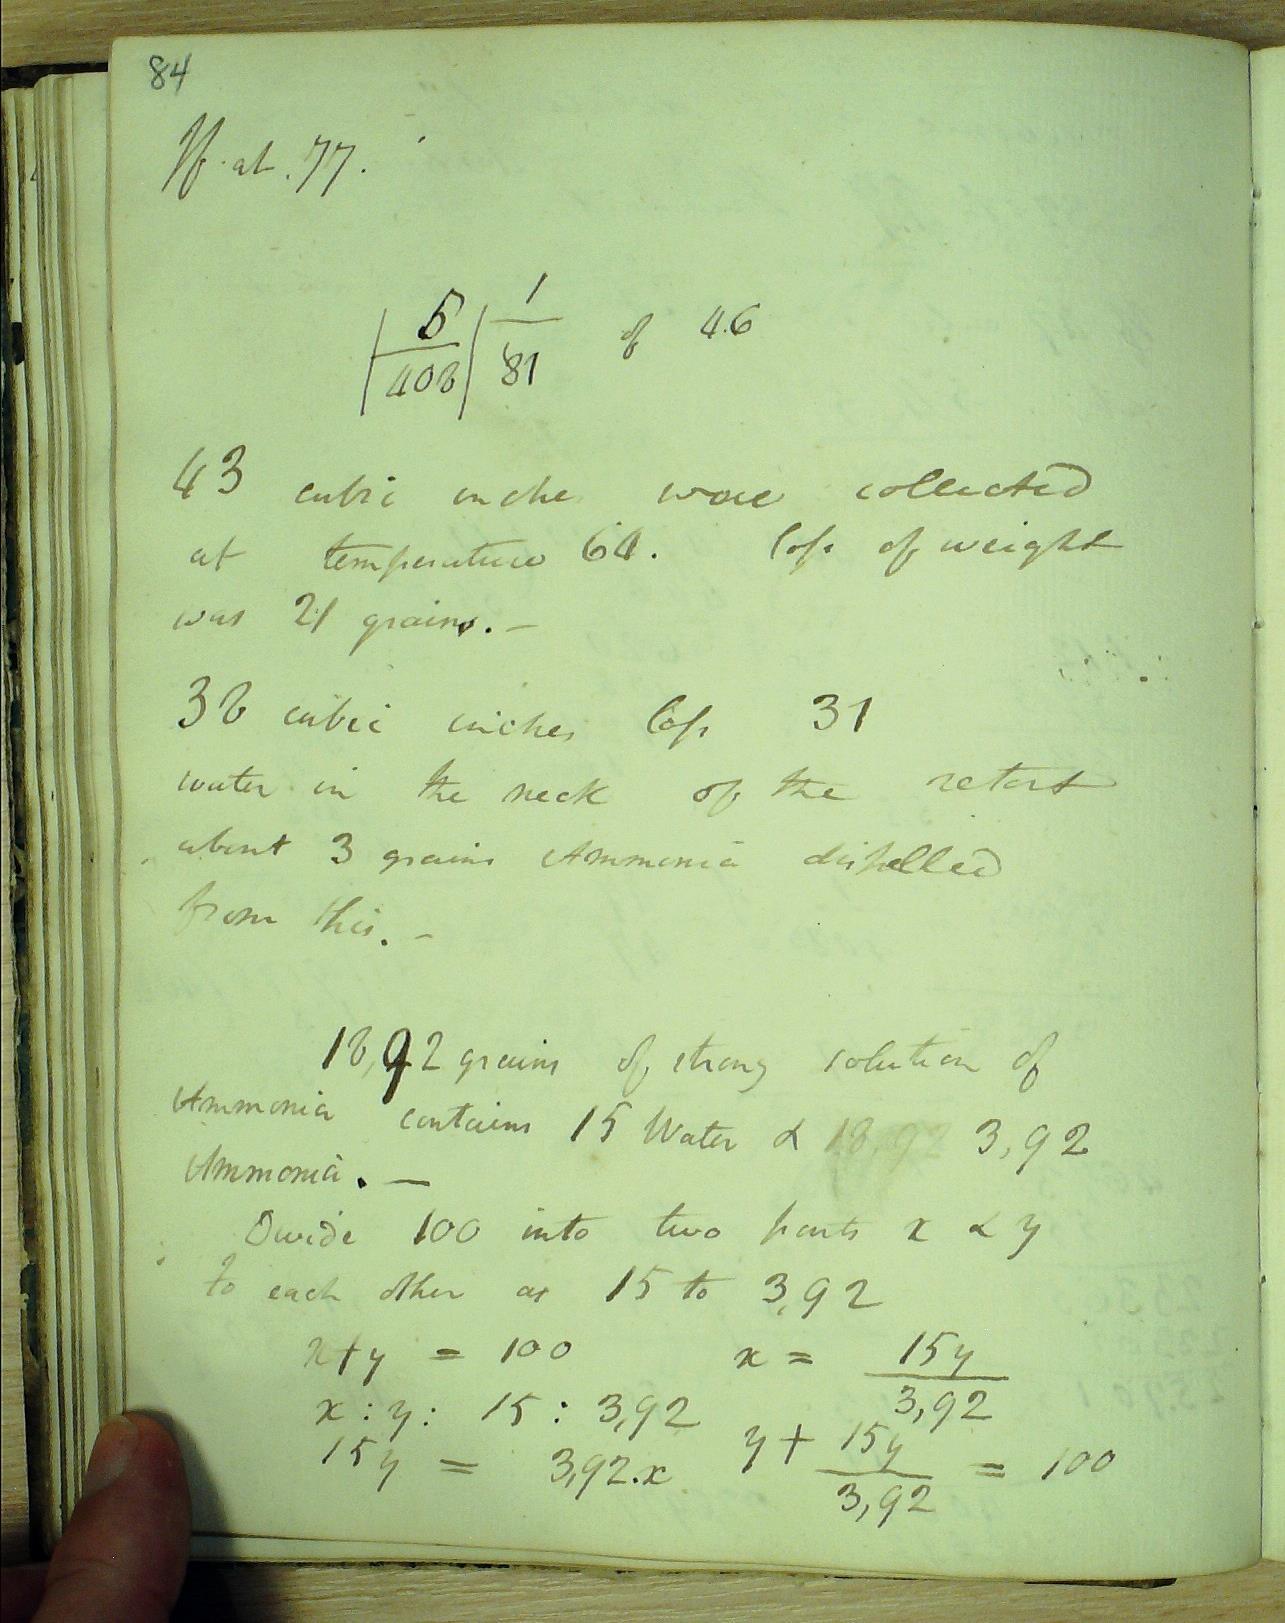 84
If at . 77 .
5 1 of 46
408 81
43 cubic inches were collected
at temperature 64. Loss of weight
was 21 grains. –
38 cubic inches loss 31
water in the neck of the retort
about 3 grains Ammonia distilled
from this. –
18,92 grains of strong solution of
Ammonia contains 15 Water & 18,92 3,92
Ammonia. —
Divide 100 into two parts x & y
to each other as 15 to 3,92
x+y = 100 x = 15y / 3,92
x : y : 15 : 3,92
15y = 3,92.x y + 15y / 3,92 = 100